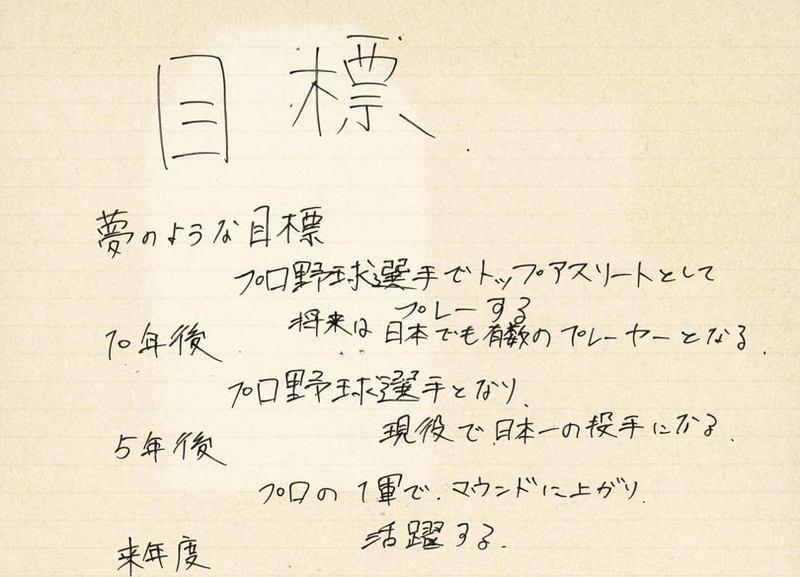 目標
夢のような目標
プロ野球選手でトップアスリートとして
プレーする
将来は日本でも有数のプレーヤーとなる.
10年後
プロ野球選手となり,
現役で日本一の投手になる.
5年後
プロの1軍で,マウンドに上がり,
活躍する.
来年度